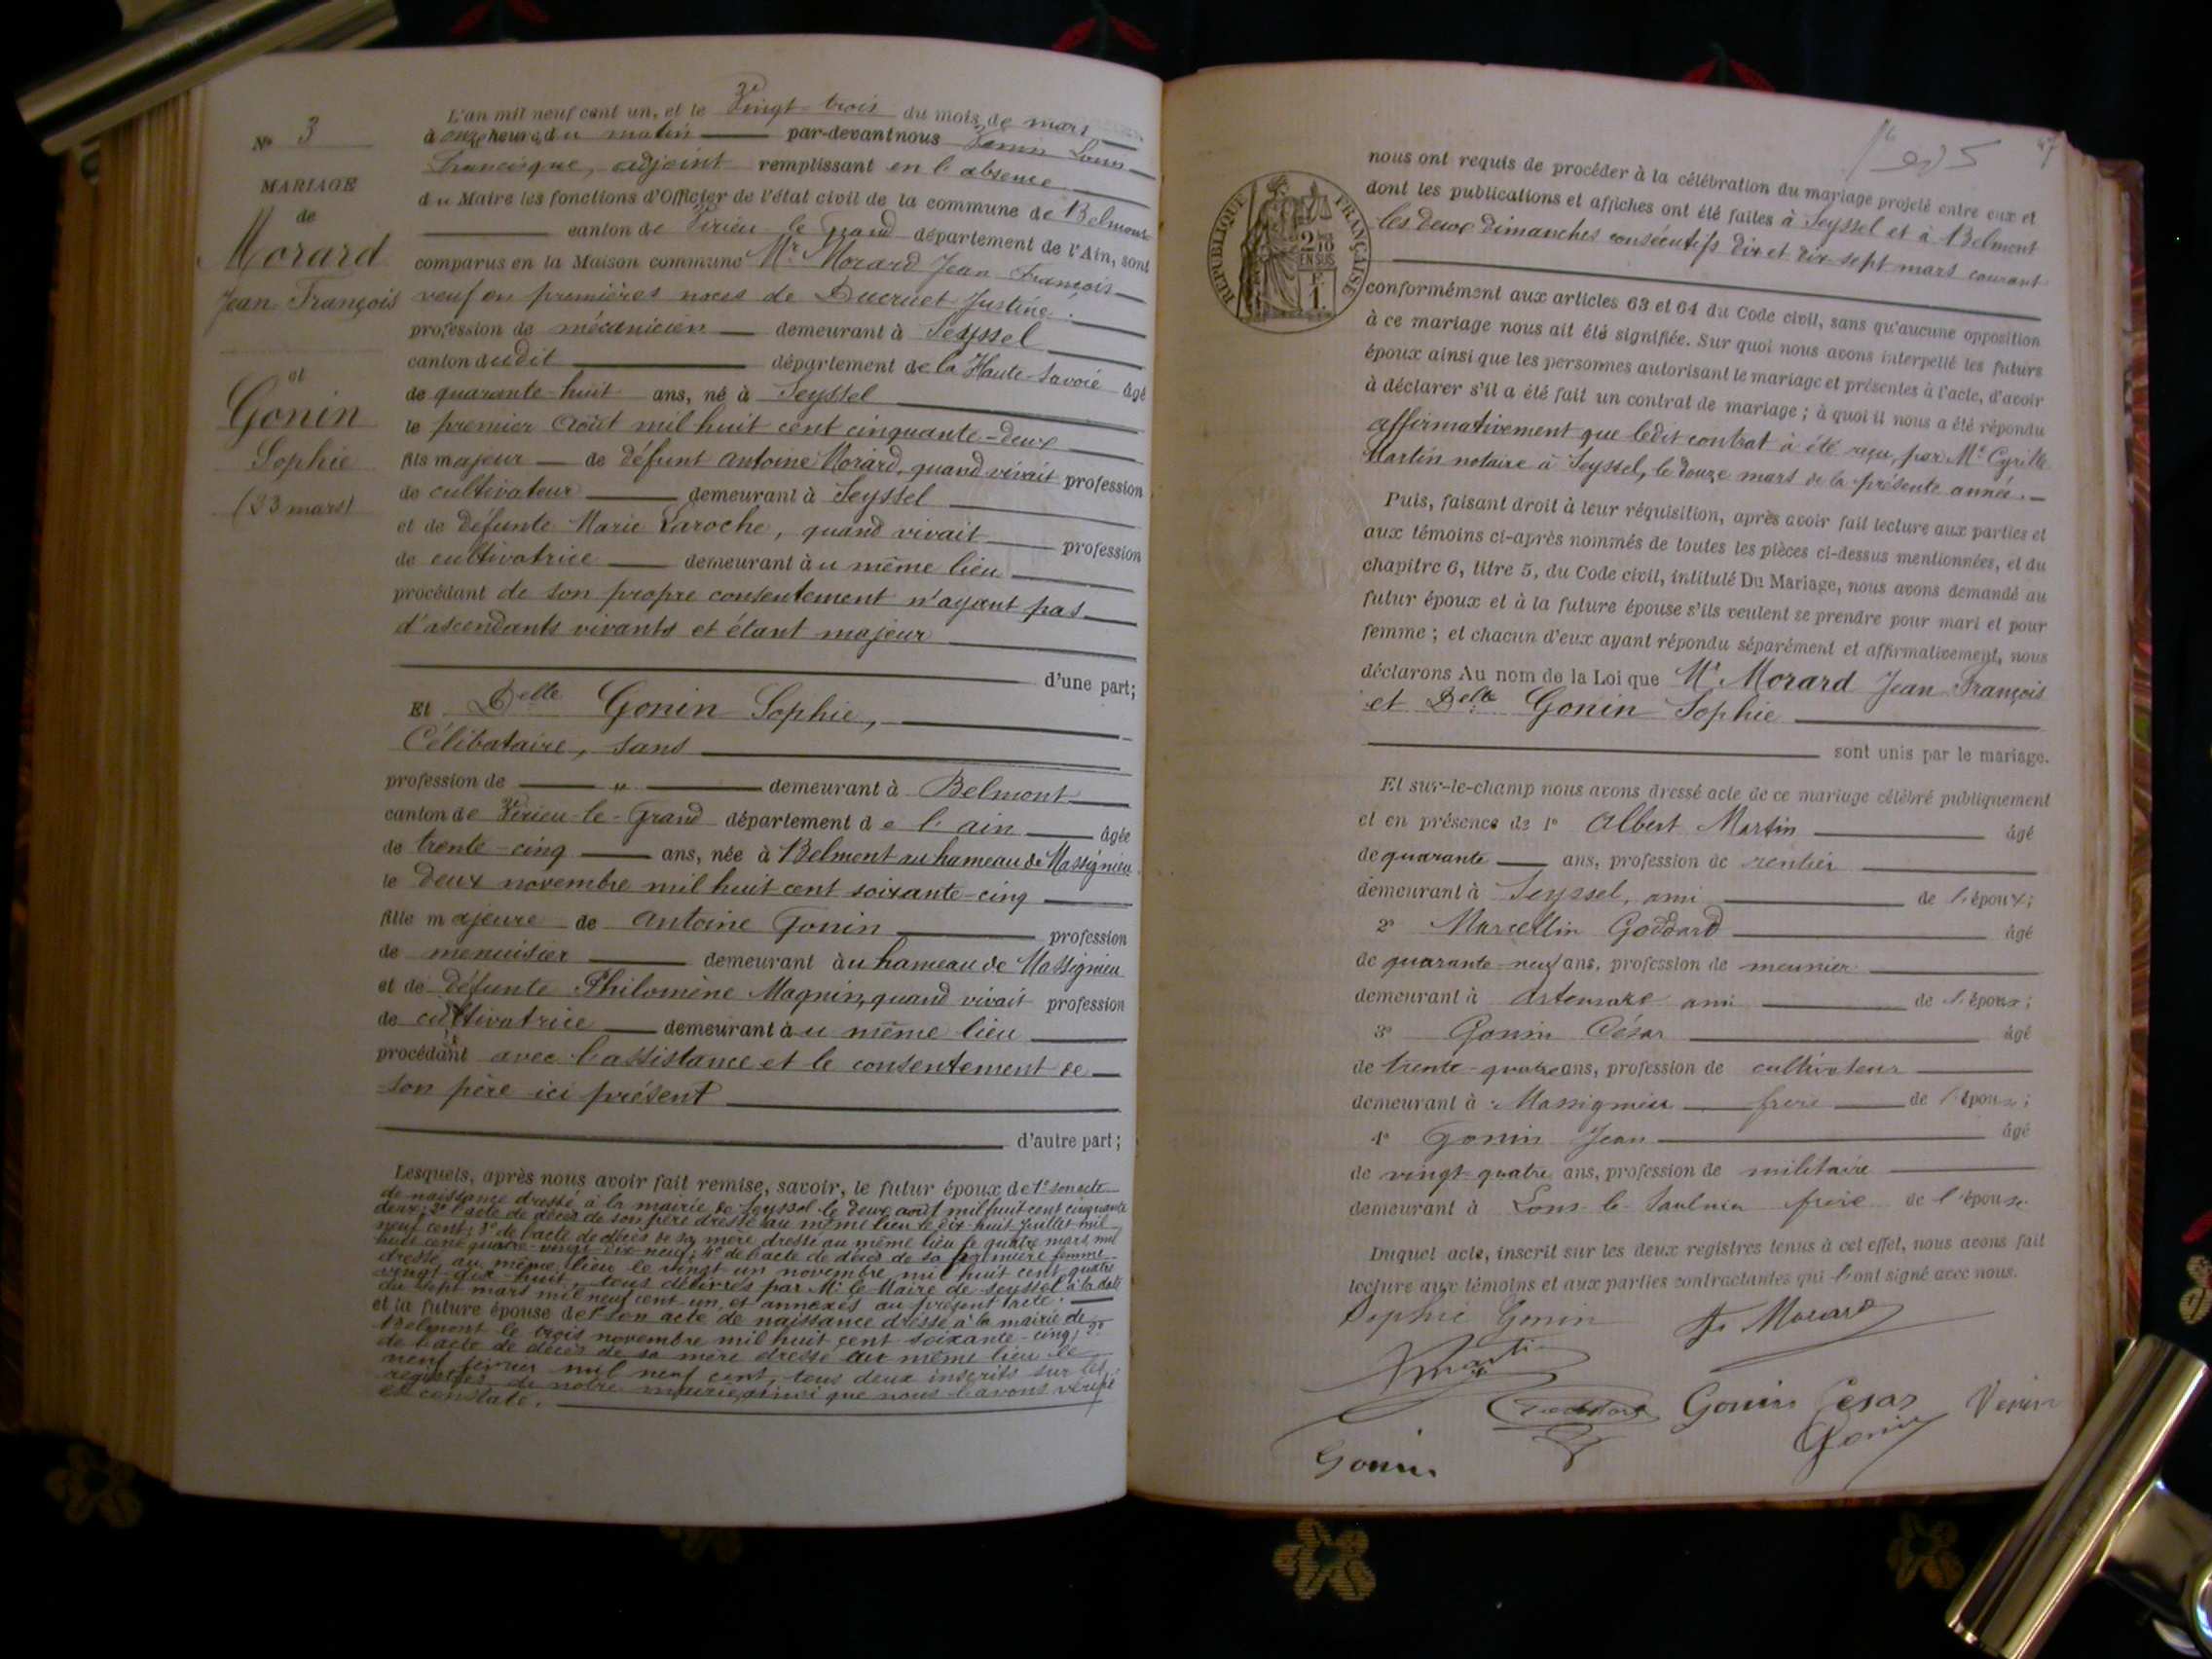 N° 3
MARIAGE
de
Morard
Jean François
et
Gonin
Sophie
(23 mars)
L'an mil neuf cent un, et le Vingt trois du mois de mars
à onze heures du matin par-devant nous Louis
Francisque, adjoint remplissant en l'absence
du Maire les fonctions d'Officier de l'état civil de la commune de Belmont
canton de Virieu le Grand département de l'Ain, sont
comparus en la Maison commune Mr Morard Jean François
veuf en premières noces de Ducruet Justine
profession de mécanicien demeurant à Seyssel
canton dudit département de la Haute-Savoie âgé
de quarante-huit ans, né à Seyssel
le premier Août mil huit cent cinquante-deux
fils majeur de défunt Antoine Morard, quand vivait profession
de cultivateur demeurant à Seyssel
et de défunte Marie Laroche, quand vivait profession
de cultivatrice demeurant au même lieu
procédant de son propre consentement n'ayant pas
d'ascendants vivants et étant majeur
d'une part;
Et Delle Gonin Sophie,
Célibataire, sans
profession de " demeurant à Belmont
canton de Virieu-le-Grand département de l'ain âgée
de trente-cinq ans, née à Belmont au hameau de Massignieu
le deux novembre mil huit cent soixante-cinq
fille majeure de Antoine Gonin profession
de menuisier demeurant au hameau de Massignieu
et de défunte Philomène Magnin, quand vivait profession
de cultivatrice demeurant au même lieu
procédant avec l'assistance et le consentement de
son père ici présent
d'autre part;
Lesquels, après nous avoir fait remise, savoir, le futur époux de 1° son acte
de naissance dressé à la mairie de Seyssel le deux août mil huit cent cinquante
deux; 2° l'acte de décès de son père dressé au même lieu le dix huit Juillet mil
neuf cent; 3° de l'acte de décès de sa mère dressé au même lieu le quatre mars mil
huit cent quatre-vingt dix-neuf; 4° de l'acte de décès de sa première femme
dressé au même lieu le vingt un novembre mil huit cent quatre
vingt dix-huit, tous délivrés par Mr le Maire de Seyssel à la date
du sept mars mil neuf cent un et annexés au présent acte.
et la future épouse de 1° son acte de naissance dressé à la mairie de
Belmont le trois novembre mil huit cent soixante-cinq; 2°
de l'acte de décès de sa mère dressé au même lieu le
neuf février mil neuf cent, tous deux inscrits sur les
registres de notre mairie, ainsi que nous l'avons vérifié
et constaté.
47
RÉPUBLIQUE FRANÇAISE
2/10
EN SUS
F
1.
nous ont requis de procéder à la célébration du mariage projeté entre eux et
dont les publications et affiches ont été faites à Seyssel et à Belmont
les deux dimanches consécutifs dix et dix-sept mars courant
conformément aux articles 63 et 64 du Code civil, sans qu'aucune opposition
à ce mariage nous ait été signifiée. Sur quoi nous avons interpellé les futurs
époux ainsi que les personnes autorisant le mariage et présentes à l'acte, d'avoir
à déclarer s'il a été fait un contrat de mariage; à quoi il nous a été répondu
affirmativement que ledit contrat à été reçu, par Me Cyrille
Martin notaire à Seyssel, le douze mars de la présente année.
Puis, faisant droit à leur réquisition, après avoir fait lecture aux parties et
aux témoins ci-après nommés de toutes les pièces ci-dessus mentionnées, et du
chapitre 6, titre 5, du Code civil, intitulé Du Mariage, nous avons demandé au
futur époux et à la future épouse s'ils veulent se prendre pour mari et pour
femme; et chacun d'eux ayant répondu séparément et affirmativement, nous
déclarons Au nom de la Loi que Mr Morard Jean François
et Delle Gonin Sophie
sont unis par le mariage.
Et sur-le-champ nous avons dressé acte de ce mariage célébré publiquement
et en présence de 1° Albert Martin âgé
de quarante ans, profession de rentier
demeurant à Seyssel, ami de l'époux;
2° Marcellin Goddard âgé
de quarante-neuf ans, profession de meunier
demeurant à ami de l'époux;
3° Gonin César âgé
de trente-quatre ans, profession de cultivateur
demeurant à Massignieu frère de l'épouse;
4° Gonin Jean âgé
de vingt-quatre ans, profession de militaire
demeurant à Lons-le-Saulnier frère de l'épouse
Duquel acte, inscrit sur les deux registres tenus à cet effet, nous avons fait
lecture aux témoins et aux parties contractantes qui l'ont signé avec nous.
Sophie Gonin Morard
Martin
Goddard Gonin César
Gonin Gonin